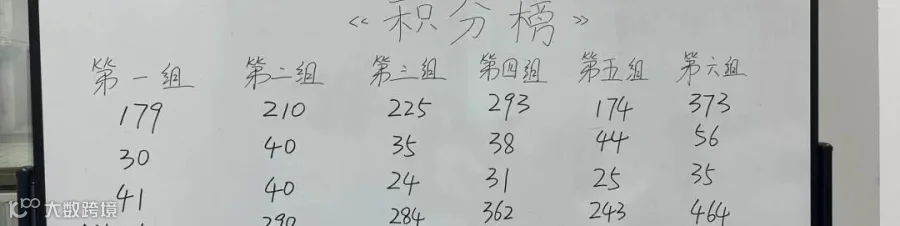 《积分榜》
第一组 第二组 第三组 第四组 第五组 第六组
179 210 225 293 174 373
30 40 35 38 44 56
41 40 24 31 25 35
290 284 362 243 464
10100 大数跨境